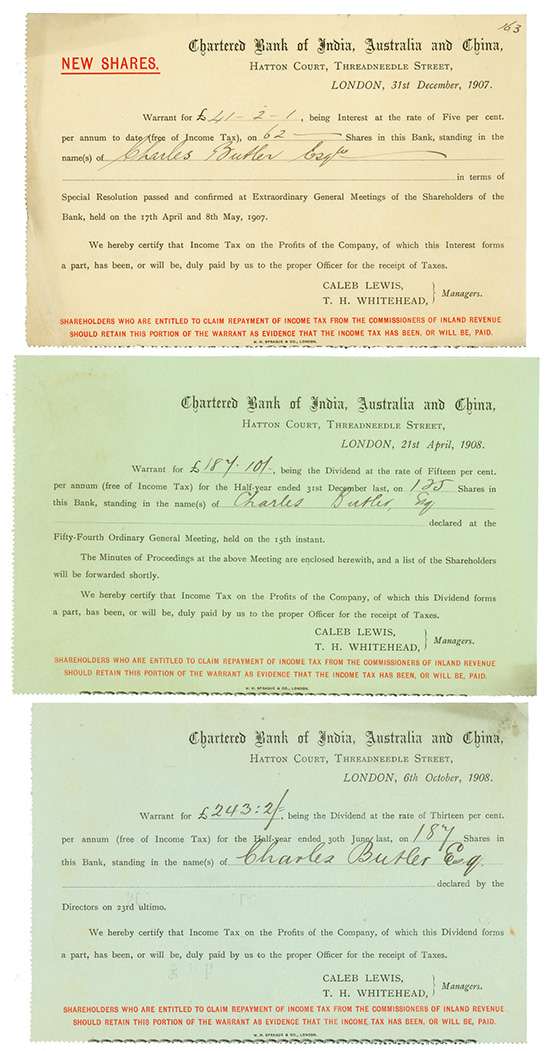 163
NEW SHARES.
Chartered Bank of India, Australia and China,
HATTON COURT, THREADNEEDLE STREET,
LONDON, 31st December, 1907.
Warrant for £41-2-1, being Interest at the rate of Five per cent.
per annum to date (free of Income Tax), on 62 Shares in this Bank, standing in the
name(s) of Charles Butler Esqre
in terms of
Special Resolution passed and confirmed at Extraordinary General Meetings of the Shareholders of
the Bank, held on the 17th April and 8th May, 1907.
We hereby certify that Income Tax on the Profits of the Company, of which this Interest forms
a part, has been, or will be, duly paid by us to the proper Officer for the receipt of Taxes.
CALEB LEWIS,
T. H. WHITEHEAD, } Managers.
SHAREHOLDERS WHO ARE ENTITLED TO CLAIM REPAYMENT OF INCOME TAX FROM THE COMMISSIONERS OF INLAND REVENUE
SHOULD RETAIN THIS PORTION OF THE WARRANT AS EVIDENCE THAT THE INCOME TAX HAS BEEN, OR WILL BE, PAID.
W. H. SPRAGUE & CO., LONDON.
Chartered Bank of India, Australia and China,
HATTON COURT, THREADNEEDLE STREET,
LONDON, 21st April, 1908.
Warrant for £187.10/-, being the Dividend at the rate of Fifteen per cent.
per annum (free of Income Tax) for the Half-year ended 31st December last, on 125 Shares in
this Bank, standing in the name(s) of Charles Butler Esq
declared at the
Fifty-Fourth Ordinary General Meeting, held on the 15th instant.
The Minutes of Proceedings at the above Meeting are enclosed herewith, and a list of the Shareholders
will be forwarded shortly.
We hereby certify that Income Tax on the Profits of the Company, of which this Dividend forms
a part, has been, or will be, duly paid by us to the proper Officer for the receipt of Taxes.
CALEB LEWIS,
T. H. WHITEHEAD, } Managers.
SHAREHOLDERS WHO ARE ENTITLED TO CLAIM REPAYMENT OF INCOME TAX FROM THE COMMISSIONERS OF INLAND REVENUE
SHOULD RETAIN THIS PORTION OF THE WARRANT AS EVIDENCE THAT THE INCOME TAX HAS BEEN, OR WILL BE, PAID.
W. H. SPRAGUE & CO., LONDON.
Chartered Bank of India, Australia and China,
HATTON COURT, THREADNEEDLE STREET,
LONDON, 6th October, 1908.
Warrant for £243:2/-, being the Dividend at the rate of Thirteen per cent.
per annum (free of Income Tax) for the Half-year ended 30th June last, on 187 Shares in
this Bank, standing in the name(s) of Charles Butler Esq.
declared by the
Directors on 23rd ultimo.
We hereby certify that Income Tax on the Profits of the Company, of which this Dividend forms
a part, has been, or will be, duly paid by us to the proper Officer for the receipt of Taxes.
CALEB LEWIS,
T. H. WHITEHEAD, } Managers.
SHAREHOLDERS WHO ARE ENTITLED TO CLAIM REPAYMENT OF INCOME TAX FROM THE COMMISSIONERS OF INLAND REVENUE
SHOULD RETAIN THIS PORTION OF THE WARRANT AS EVIDENCE THAT THE INCOME TAX HAS BEEN, OR WILL BE, PAID.
W. H. SPRAGUE & CO., LONDON.